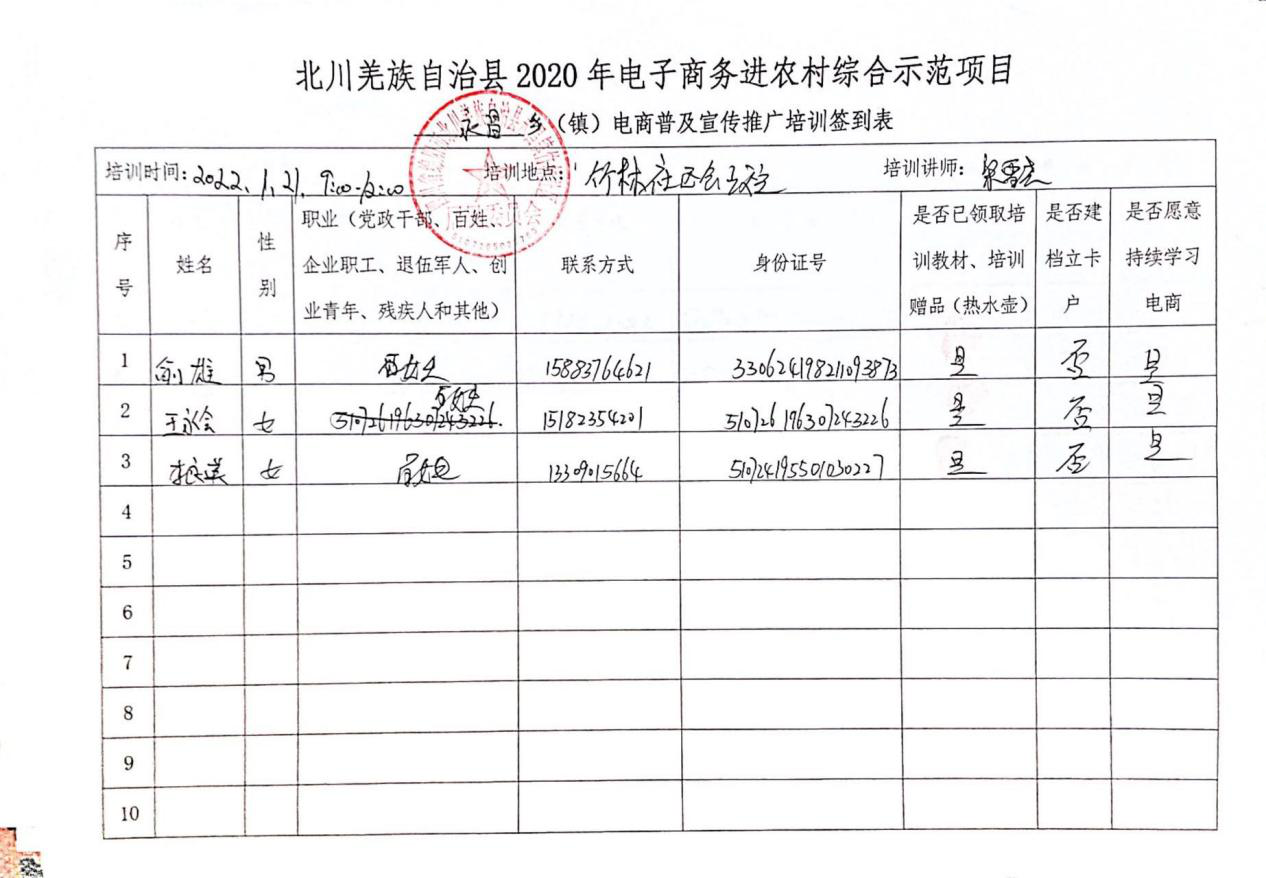 北川羌族自治县 2020 年电子商务进农村综合示范项目
永昌 乡（镇）电商普及宣传推广培训签到表
培训时间：2022.1.21. 9:00-12:00 培训地点：竹林社区会议室 培训讲师：
序号 姓名 性别 职业（党政干部、百姓、企业职工、退伍军人、创业青年、残疾人和其他） 联系方式 身份证号 是否已领取培训教材、培训赠品（热水壶） 是否建档立卡户 是否愿意持续学习电商
1 俞雄 男 百姓 15883764621 330624198211093873 是 否 是
2 王永会 女 510726196307243226. 百姓 15182354201 510726196307243226 是 否 是
3 女 百姓 13309015664 510724195501030227 是 否 是
4
5
6
7
8
9
10